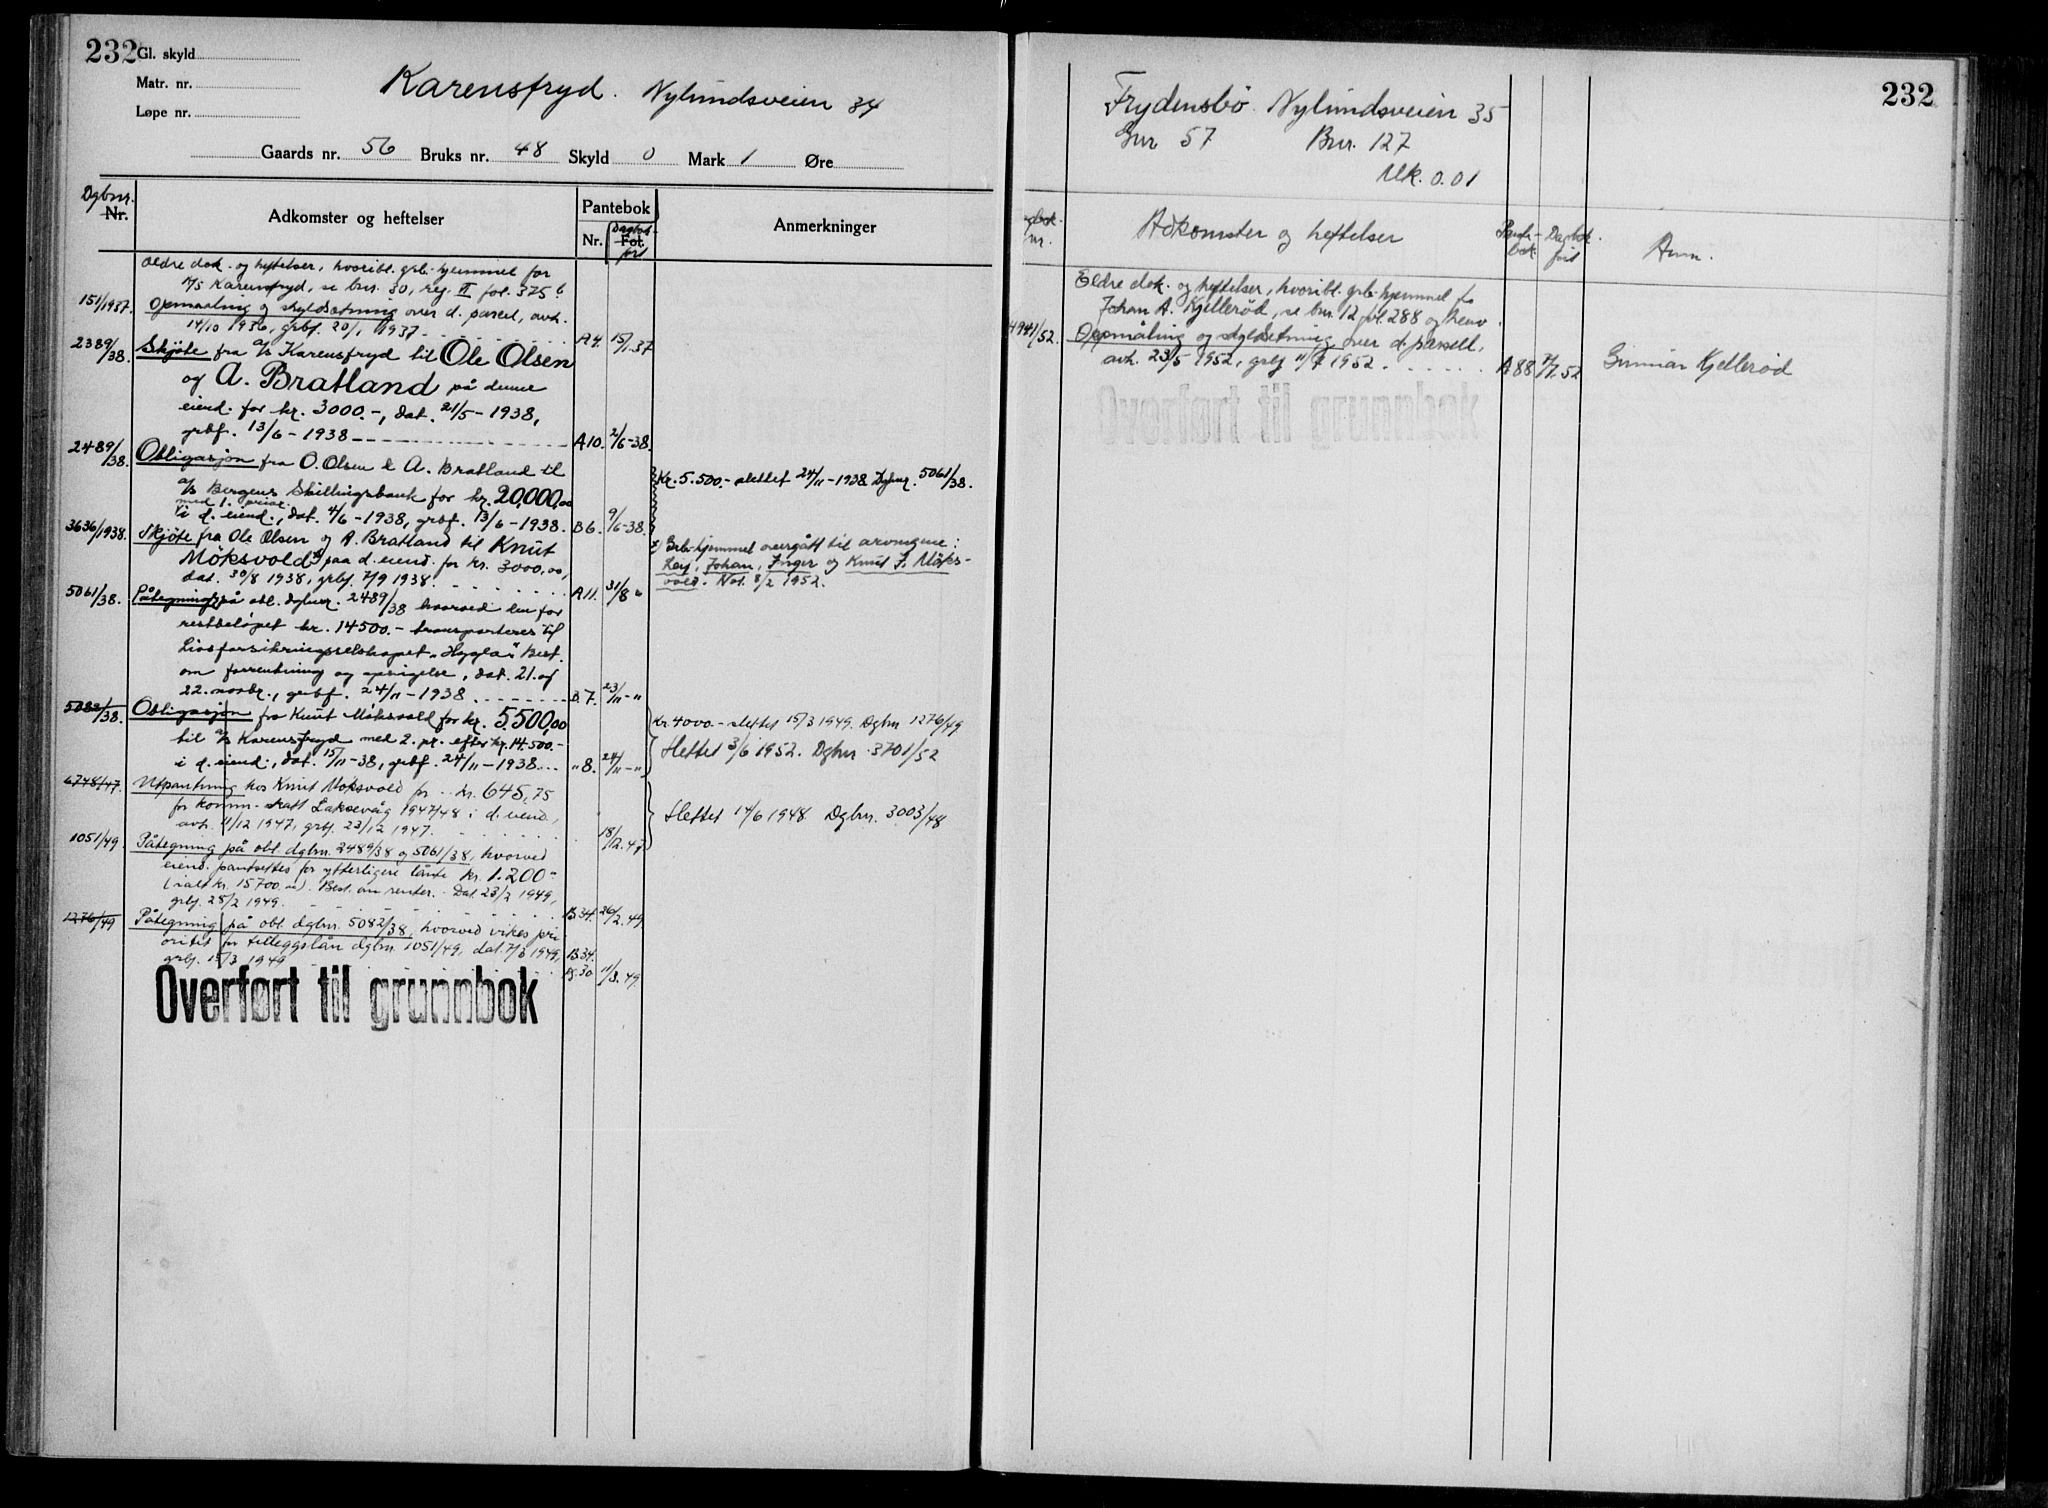 232
Gl. skyld
Matr. nr.
Løpe nr.
Karensfryd. Nylundsveien 34
Gaards nr. 56 Bruks nr. 48 Skyld 0 Mark 1 Øre
Dgbnr.
Nr.
Adkomster og heftelser
Pantebok
Nr. Fol.
Dagbok
ført
Anmerkninger
Eldre dok. og heftelser, hvoribl. grb.hjemmel for
A/S Karensfryd, se bnr. 30, reg. II fol. 375 b
151/1937. Opmaaling og skyldsætning over d. parcel, avh.
14/10 1936, grbf. 20/1 1937 A 4. 15/1.37
2389/38. Skjøte fra a/s Karensfryd til Ole Olsen
og A. Bratland på denne
eiend. for kr. 3000.-, dat. 21/5-1938,
grbf. 13/6-1938 A10. 2/6-38.
2489/38. Obligasjon fra O. Olsen & A. Bratland til
a/s Bergens Skillingsbank for kr. 20,000,00
med 1. prior.
i d. eiend., dat. 4/6-1938, grbf. 13/6-1938. B6. 9/6-38.
Kr. 5.500.- slettet 24/11-1938 Dgbnr. 5061/38.
3636/1938. Skjøte fra Ole Olsen og A. Bratland til Knut
Möksvold x) paa d. eiend. for kr. 3000,00,
dat. 30/8 1938, grbf. 7/9 1938. A11. 31/8 "
x) Grb.hjemmel overgått til arvingene:
Leif, Johan, Inger og Knut J. Möks-
vold. Not. 8/2 1952.
5061/38. Påtegning på obl. dgbnr. 2489/38 hvorved den for
restbeløpet kr. 14500.- transporteres til
Livsforsikringsselskapet "Hygea". Best.
om forrentning og opsigelse, dat. 21. og
22. novbr., grbf. 24/11-1938 B.7. 23/11-"
5082/38. Obligasjon fra Knut Möksvold for kr. 5500,00
til a/s Karensfryd med 2. pr. efter kr. 14.500.-
i d. eiend., dat. 15/11-38, grbf. 24/11-1938 "8. 24/11-"
Kr 4000.- slettet 15/3 1949. Dgbnr 1276/49
Slettet 3/6 1952. Dgbnr 3701/52
6748/47. Utpantning hos Knut Möksvold for kr. 645,75
for komm. skatt Laksevåg 1947/48 i d. eiend,
avh. 11/12 1947, grbf. 23/12 1947. 18/12.47
Slettet 14/6 1948 Dgbnr. 3003/48
1051/49. Påtegning på obl. dgbnr. 2489/38 og 5061/38, hvorved
eiend. pantsettes for ytterligere lånte kr. 1.200.-
(ialt kr. 15700.00). Best. om renter. Dat. 23/2 1949,
grbf. 28/2 1949. B34. 26/2.49
1276/49 Påtegning på obl. dgbnr. 5082/38, hvorved vikes pri-
oritet for tilleggslån dgbnr. 1051/49, dat. 7/3 1949, B34.
grbf. 15/3 1949 B.30 11/3.49
Overført til grunnbok
232
Frydensbö. Nylundsveien 35
Gnr 57 Bnr. 127
Mk. 0.01
nr.
Adkomster og heftelser
Pante-
bok
Dagbok
ført
Anm.
Eldre dok. og heftelser, hvoribl. grb.hjemmel for
Johan A. Kjelleröd, se bnr. 12 fol. 288 og henv.
4941/52. Oppmåling og skyldsetning over d. parsell,
avh. 23/5 1952, grbf 11/7 1952. A88 7/7.52
Gunnar Kjelleröd
Overført til grunnbok